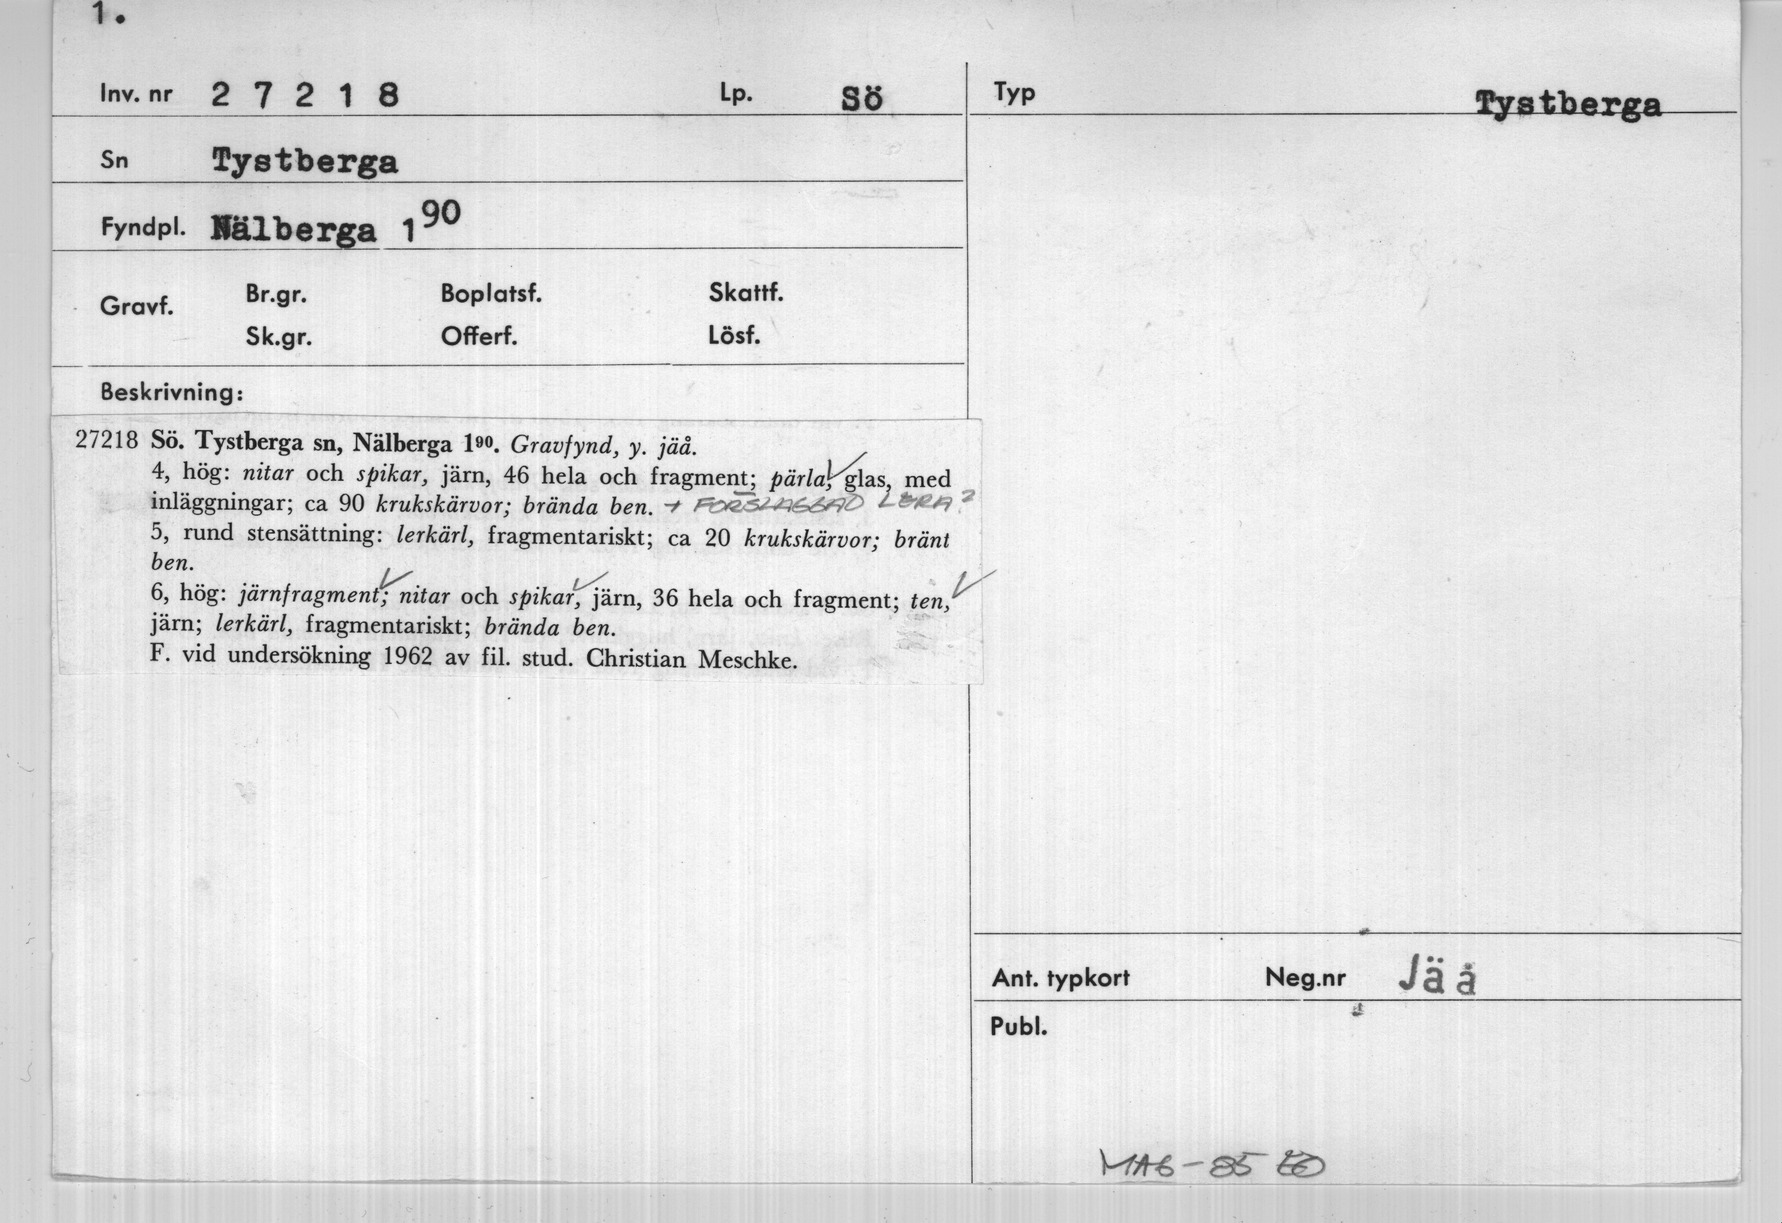 1.
Inv. nr 2 7 2 1 8 Lp. Sö
Sn Tystberga
Fyndpl. Nälberga 1⁹⁰
Gravf. Br.gr. Boplatsf. Skattf.
Sk.gr. Offerf. Lösf.
Beskrivning:
27218 Sö. Tystberga sn, Nälberga 1⁹⁰. Gravfynd, y. jäå.
4, hög: nitar och spikar, järn, 46 hela och fragment; pärla, glas, med
inläggningar; ca 90 krukskärvor; brända ben. + FÖRSLAGGAD LERA?
5, rund stensättning: lerkärl, fragmentariskt; ca 20 krukskärvor; bränt
ben.
6, hög: järnfragment; nitar och spikar, järn, 36 hela och fragment; ten,
järn; lerkärl, fragmentariskt; brända ben.
F. vid undersökning 1962 av fil. stud. Christian Meschke.
Typ Tystberga
Ant. typkort Neg.nr Jäå
Publ.
MAG-85